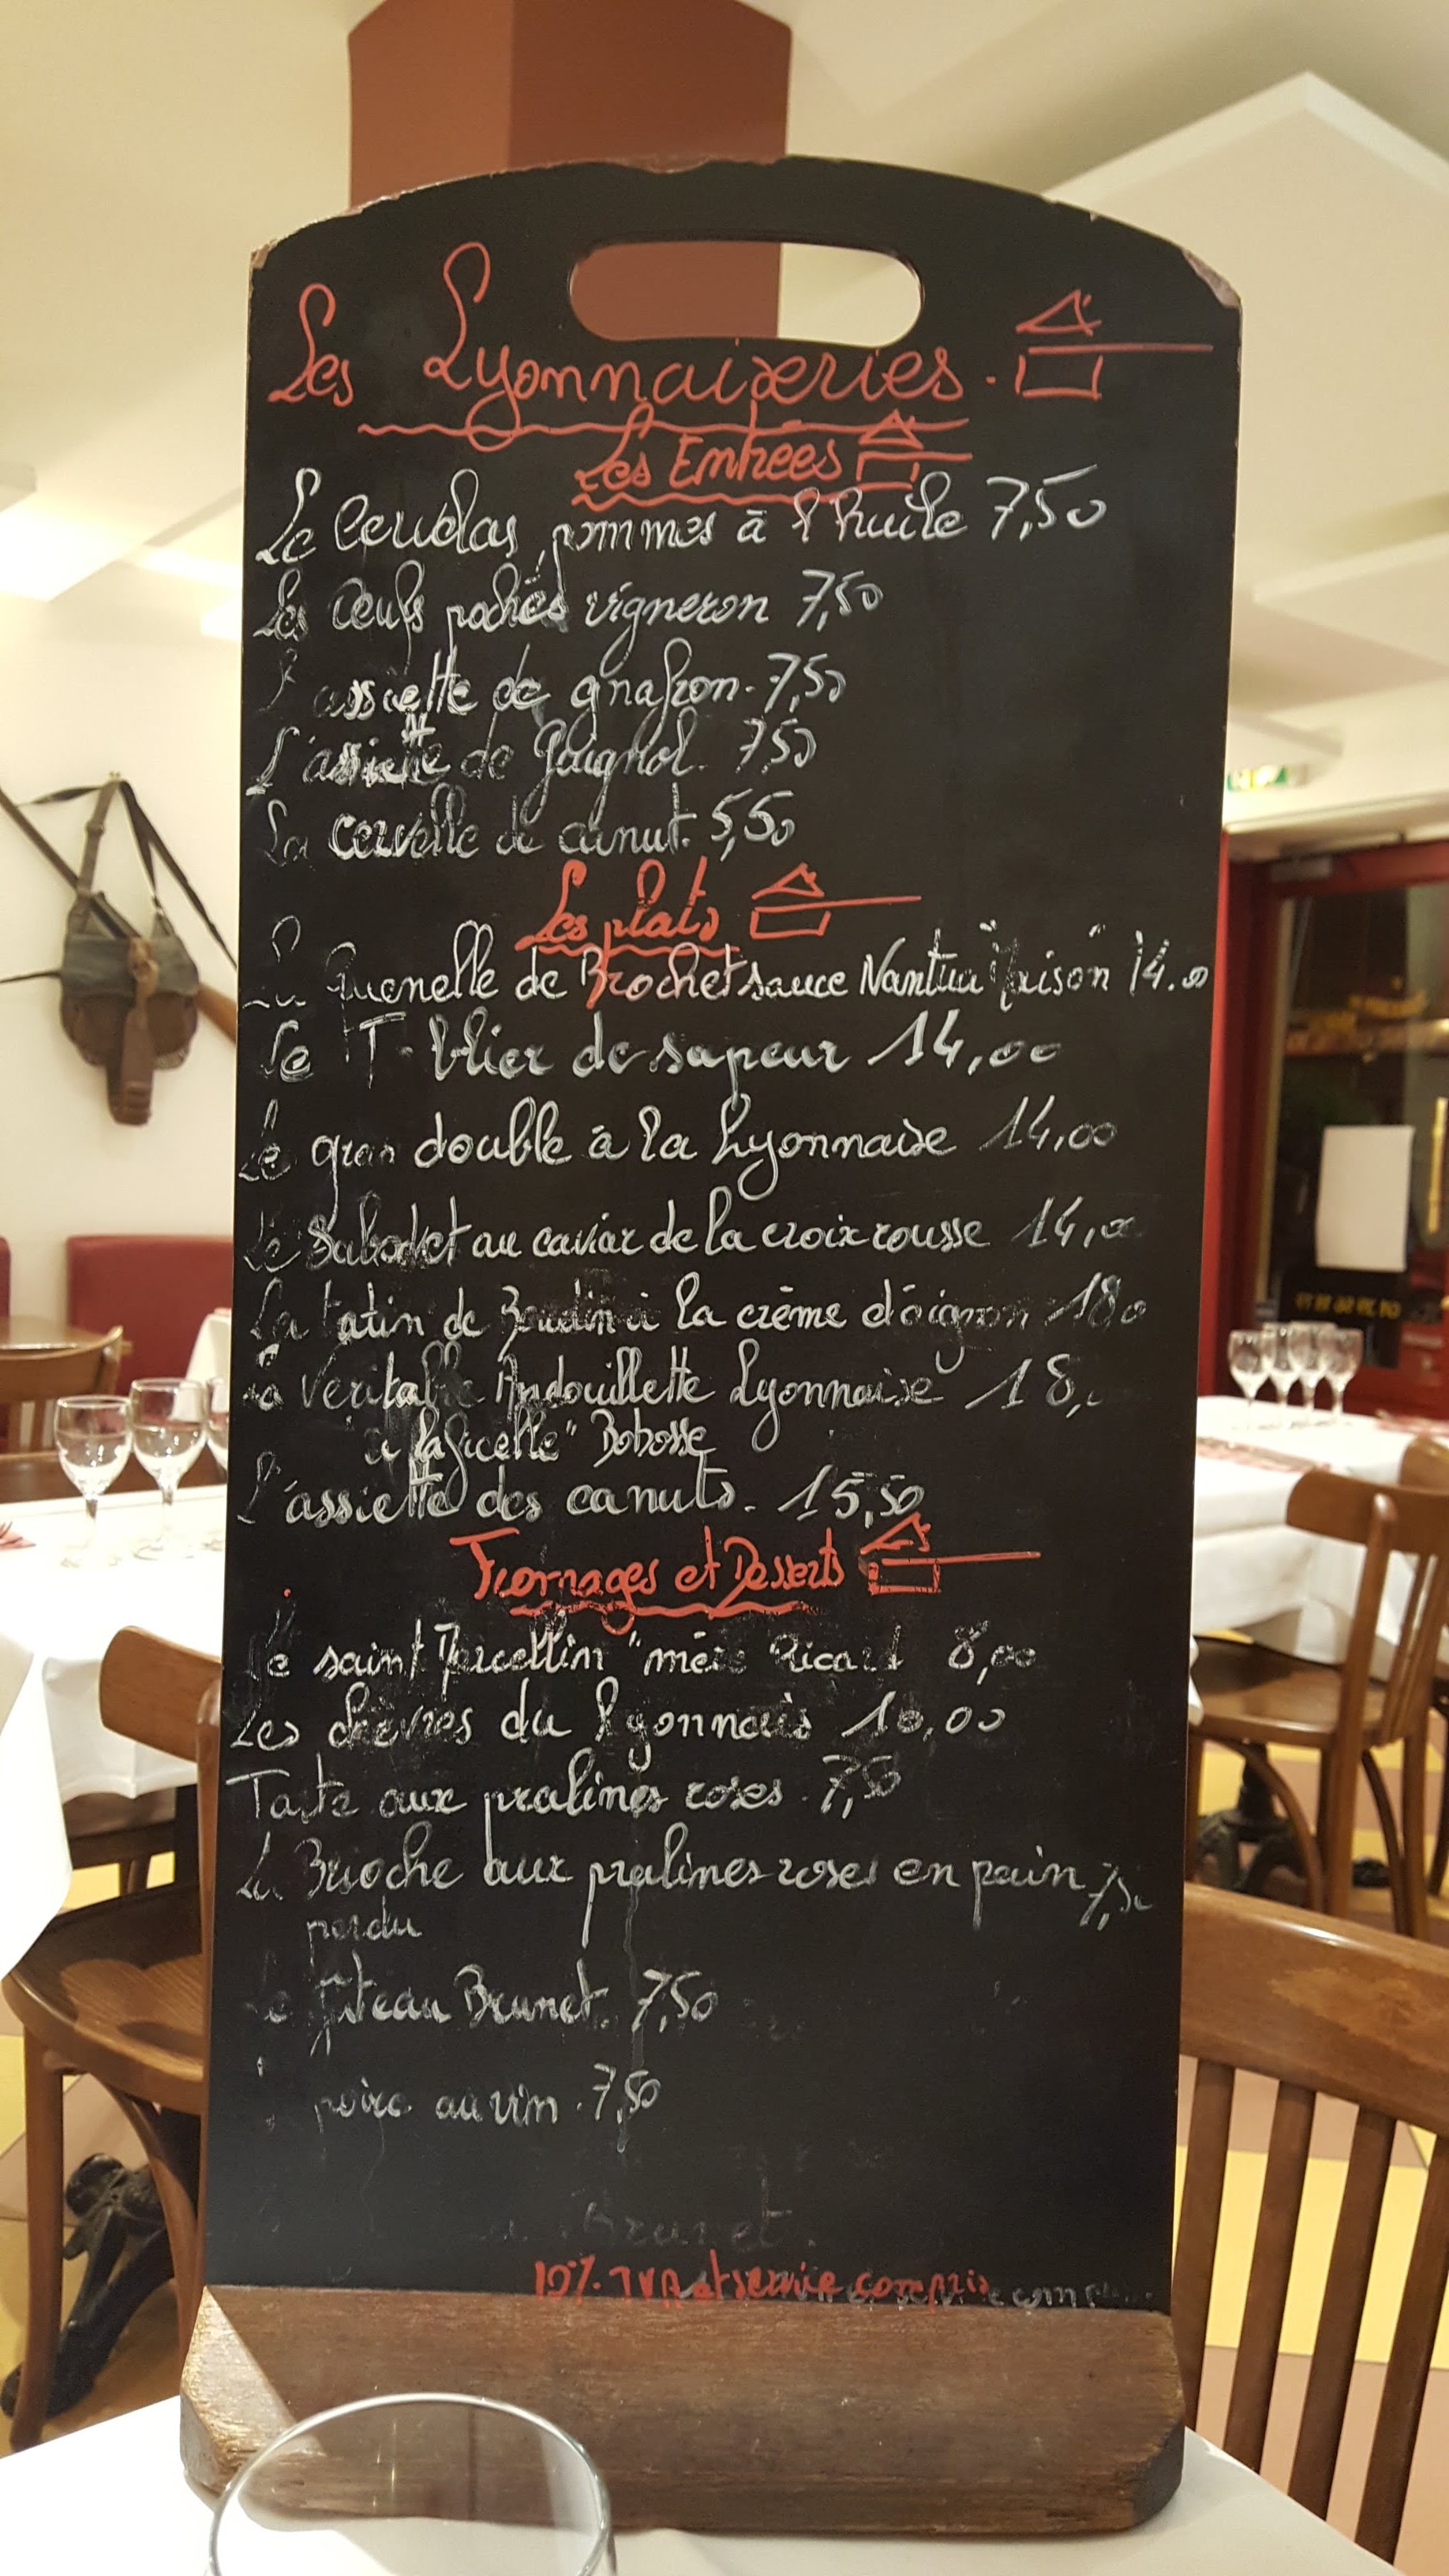 Les Lyonnaiseries.
Les Entrées
Le Cervelas, pommes à l'huile 7,50
Les Oeufs pochés vigneron 7,50
L'assiette de gnafron. 7,50
L'assiette de Guignol. 7,50
La cervelle de canut. 5,50
Les plats
La Quenelle de Brochet sauce Nantua "Maison" 14.00
Le T-blier de sapeur 14,00
Le gras double à la Lyonnaise 14,00
Le Sabodet au caviar de la croix rousse 14,00
La tatin de Boudin à la crème d'oignon
La véritable Andouillette Lyonnaise 18,
à la ficelle" Bobosse
L'assiette des canuts. 15,50
Fromages et Desserts
Le saint Marcellin "mère Ricard 8,00
Les chèvres du Lyonnais 10,00
Tarte aux pralines roses. 7,50
La Brioche aux pralines roses en pain 7,50
perdu
Le gâteau Brunet. 7,50
poire au vin. 7,50
Brunet.
10%. TVA et service compris